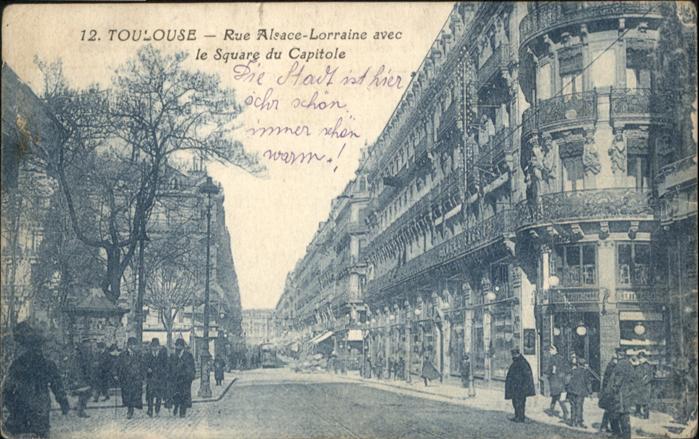 12. TOULOUSE — Rue Alsace-Lorraine avec
le Square du Capitole
Die Stadt ist hier
sehr schön,
immer schön
warm!